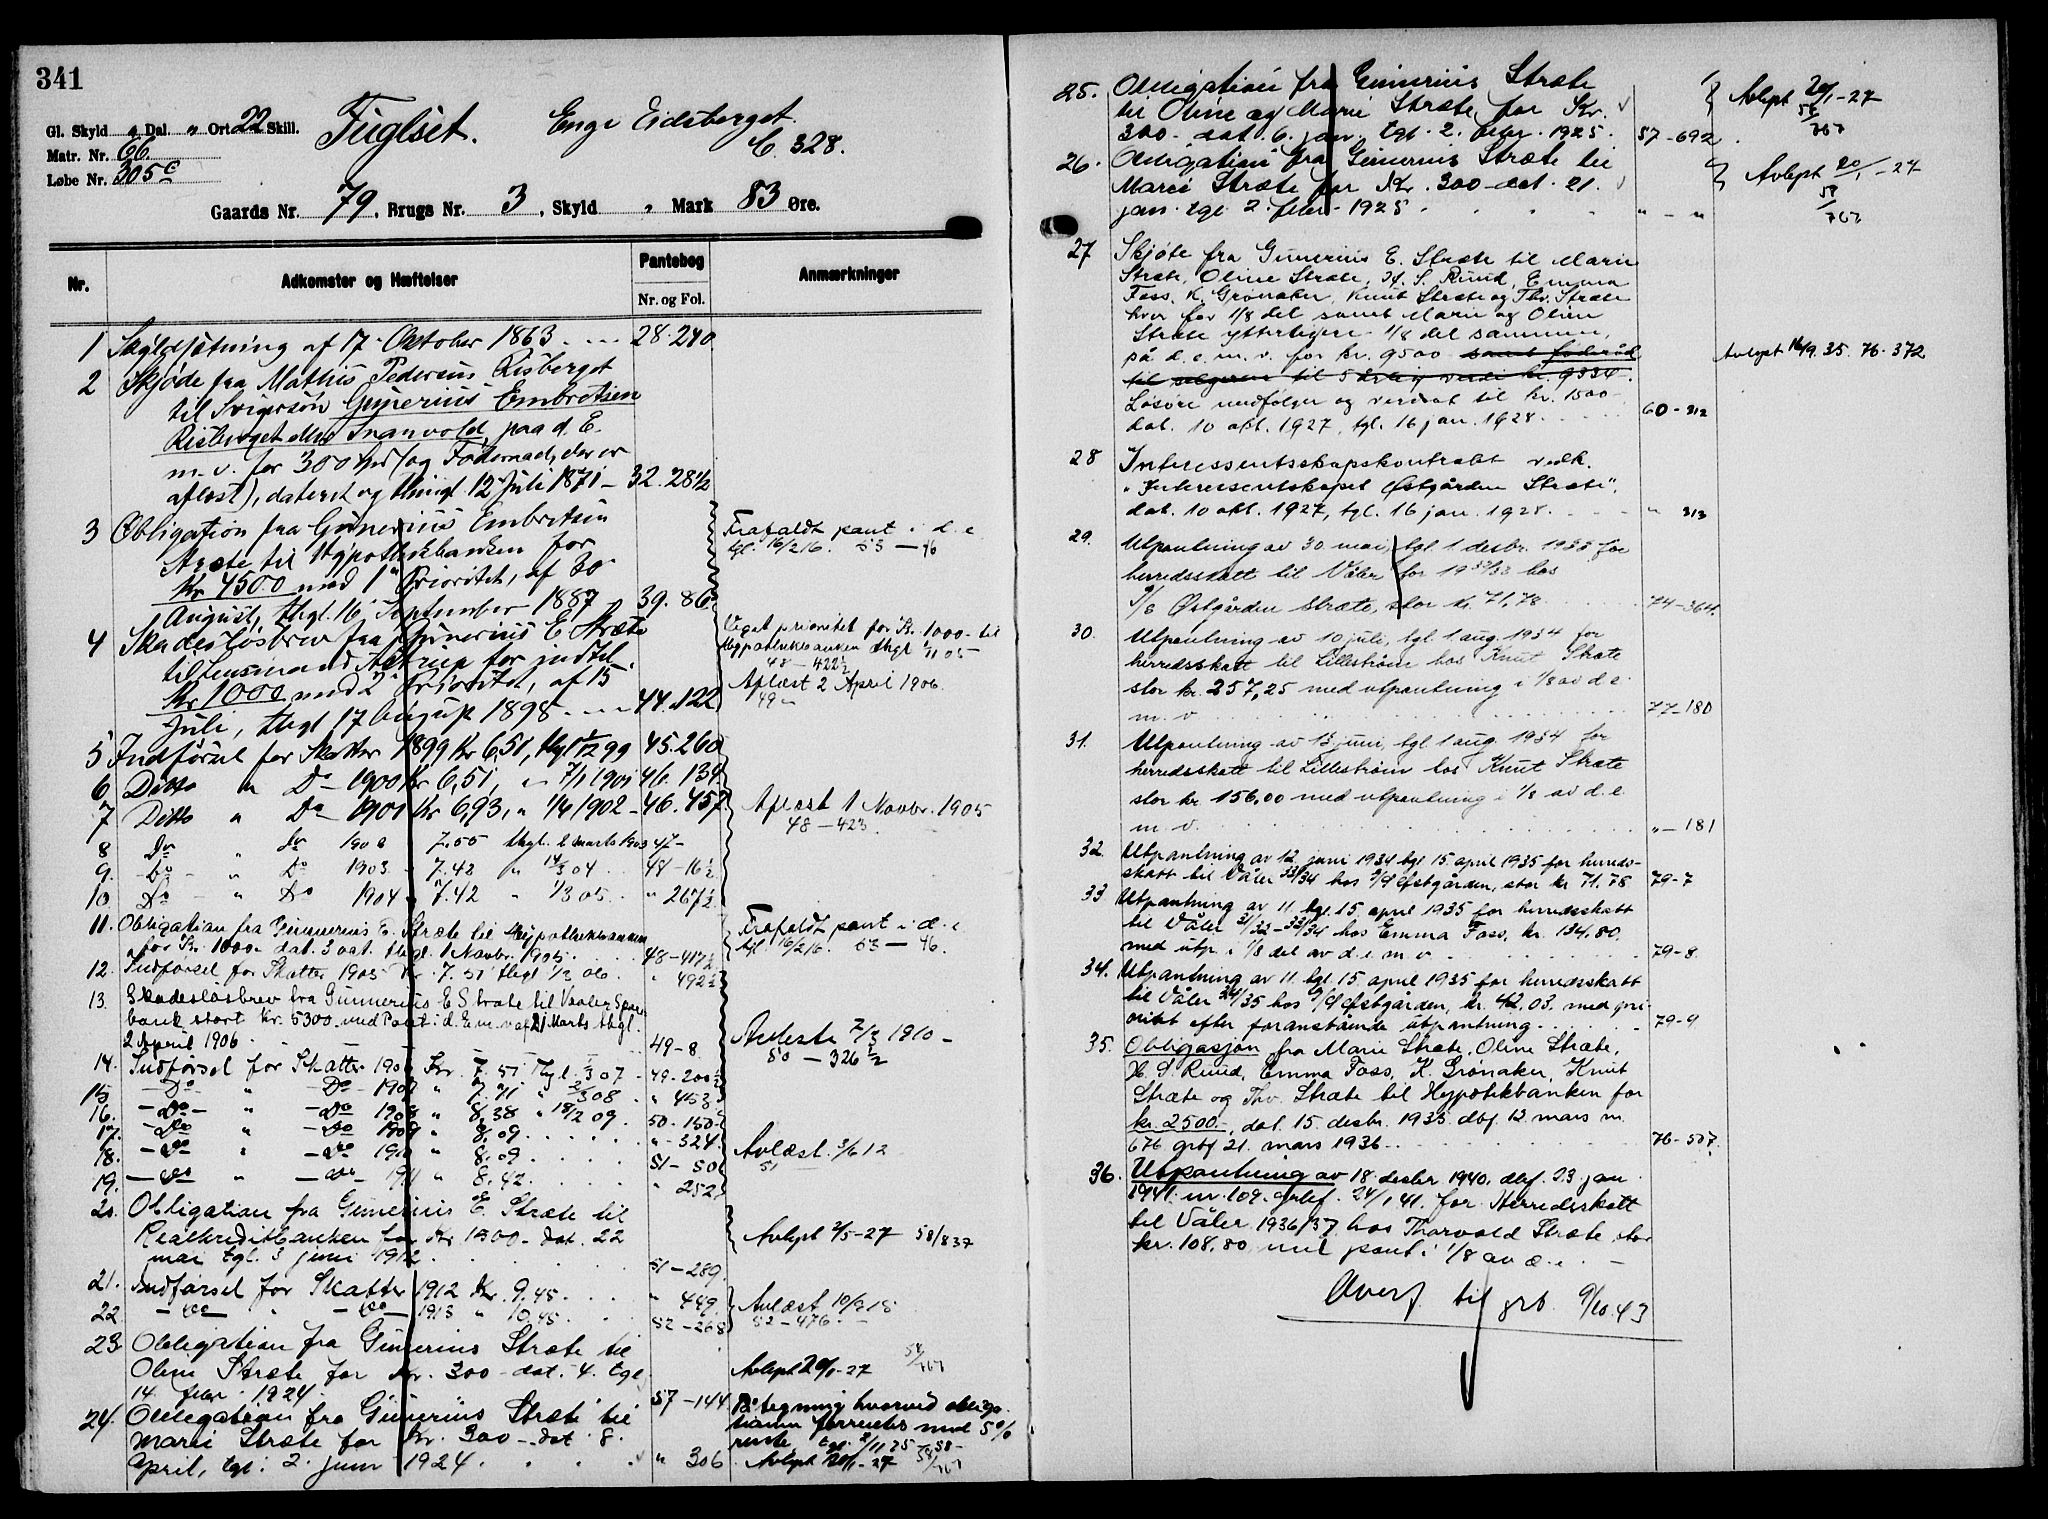 341
Gl. Skyld " Dal. " Ort 22 Skill.
Fuglset.
Enge Eidsberget.
C. 328.
Matr. Nr. 66.
Løbe Nr. 305 c
Gaards Nr. 79, Brugs Nr. 3, Skyld " Mark 83 Øre.
Nr.
Adkomster og Hæftelser
Pantebog
Nr. og Fol.
Anmærkninger
1 Skyldsætning af 17 Oktober 1863 28. 240
2 Skjøde fra Mathis Pedersen Risberget
til Svigersøn Gunerius Embretsen
Risberget eller Svanvold, paa d. E.
m. v. for 300 Spd (og Føderaad, der er
aflæst), dateret og thingl 12 Juli 1871 - 32. 281/2
3 Obligation fra Gunerius Embretsen
Stræte til Hypothekbanken for
Kr 4500 med 1ste Prioritet, af 30
August, thgl. 16 September 1887 39. 86
Frafaldt pant i d. e
tgl. 16/2 16. 53 - 46
4 Skadesløsbrev fra Gunerius E Stræte
til Lensmand Astrup for indtil
Kr 1000 med 2 Prioritet, af 15
Juli, thgl 17 August 1898 44. 122
Veget prioritet for Kr. 1000 - til
Hypothekbanken thgl 1/11 05
48 - 422 1/2
Aflæst 2 April 1906.
49 -
5 Indførsel for Skatter 1899 Kr 6,51, thgl 1/12 99 45. 260
6 Ditto " Do 1900 Kr 6,51, " 7/1 1901 46. 134
7 Ditto " Do 1901 Kr 6,93, " 1/4 1902 - 46. 457
8 Do " do 1902 7.55 thgl. 2 marts 1903 47 -
9. Do - " Do 1903 - 7.42 " 14/3 04 48 - 16 1/2
10 Do - " Do 1904 " 7.42 " 1/3 05 " 267 1/2
Aflæst 1 Novbr. 1905
48 - 423
11. Obligation fra Gunnerius E. Stræte til Hypothekbanken
for Kr. 1000 - dat. 3 oct. thgl. 1 Novbr. 1905 48 - 417 1/2
Frafaldt pant i d. e
tgl. 16/2 16. 53 - 46.
12. Indførsel for Skatter 1905 Kr. 7.51 thgl 1/3 06. " 492 1/2
13. Skadesløsbrev fra Gunnerius E Stræte til Vaaler Spare
bank stort Kr. 5300 med Pant i d. E m. v af 21 Marts thgl.
2 April 1906 49 - 8.
Avlæste 2/3 1910 -
50 - 326 1/2
14. Indførsel for Skatter 1906 Kr. 7.51 Thgl. 1/3 07 - 49 - 200 1/2
15 - Do - " Do - 1907 " 7.71 " 2/3 08 " 453
16. - Do - " - Do 1908 " 8.38 " 18/2 09 50 - 150
17. - Do " - Do 1909 " 8.09 " - 324
18. - Do " - Do 1910 " 8.09 51 - 50
19. - Do " - Do 1911 " 8.42 " 252
Avlæst. 3/6 12
51
20. Obligation fra Gunerius E. Stræte til
Realkreditbanken for Kr 1300 - dat. 22
mai tgl. 3 juni 1912 51 - 289.
Avlyst 2/5 - 27 58/837
21. Indførsel for Skatter 1912 Kr. 9.45 " 449
22 - Do - " - Do - 1913 " 10.45 52 - 268
Avlæst 10/3 15
52 - 476.
23 Obligation fra Gunerius Stræte til
Oline Stræte for Kr. 300 - dat. 4. tgl
14. febr. 1924. 57 - 144
Avlyst 20/1 - 27 58/767
24. Obligation fra Gunerius Stræte til
Marie Stræte for Kr. 300 - dat 8.
April, tgl. 2. juni 1924. " 306
Påtegning hvorved obliga-
tionen forrentes med 5%
rente tgl. 2/11 25 - 58 -
Avlyst 20/1 - 27 58/767
25. Obligation fra Gunnerius Stræte
til Oline og Marie Stræte for Kr.
300 - dat. 6. jan. tgl. 2. febr. 1925. 57 - 692
Avlyst 20/1 - 27
58/767
26. Obligation fra Gunnerius Stræte til
Marie Stræte for Kr. 300 - dat. 21.
jan. tgl 2. febr. 1925 " - "
Avlyst 20/1 - 27
58/767
27 Skjøte fra Gunerius E. Stræte til Marie
Stræte, Oline Stræte, H. S. Ruud, Emma
Foss, K. Grønaker, Knut Stræte og Thv. Stræte
hver for 1/8 del samt Marie og Oline
Stræte ytterligere 1/8 del sammen,
på d. e. m. v. for kr. 9500 samt føderåd
til selgeren til 5 årlig verdi kr. 9334.
Løsøre medfølger og verdsat til kr. 1500 -
dat. 10 okt. 1927, tgl. 16 jan. 1928. 60 - 312
Avlyst 16/9. 35. 76 - 372
28 Interessentskapskontrakt vedk.
"Interessentskapet Østgården Stræte",
dat. 10 okt. 1927, tgl. 16 jan. 1928. " 313
29. Utpantning av 30 mai, tgl 1 desbr. 1933 for
herredsskatt til Våler for 1932/33 hos
9/8 Østgården Stræte, stor kr. 71,78 74 - 364.
30. Utpantning av 10 juli, tgl 1 aug. 1934 for
herredsskatt til Lillestrøm hos Knut Stræte
stor kr. 257,25 med utpantning i 1/8 av d. e.
m. v. 77 - 180
31. Utpantning av 13 juni, tgl 1 aug. 1934 for
herredsskatt til Lillestrøm hos Knut Stræte
stor kr 156,00 med utpantning i 1/8 av d. e.
m. v. " - 181
32. Utpantning av 12 juni 1934 tgl 15. april 1935 for herreds-
skatt til Våler 33/34 hos Østgården, stor kr 71.78 79 - 7
33 Utpantning av 11. tgl. 15. april 1935 for herredsskatt
til Våler 31/32 - 33/34 hos Emma Foss, kr. 134,80.
med utp. i 1/8 del av d. e. m. v 79 - 8.
34. Utpantning av 11. tgl. 15. april 1935 for herredsskatt
til Våler 34/35 hos Østgården, kr. 42,03. med pri-
oritet efter foranstående utpantning 79 - 9
35. Obligasjon fra Marie Stræte, Oline Stræte,
H. S. Ruud, Emma Foss, K. Grønaker, Knut
Stræte og Thv. Stræte til Hypotekbanken for
kr. 2500 -, dat. 15. desbr. 1935 dbf. 12 mars nr.
676 grbf 21. mars 1936 76 - 507.
36. Utpantning av 18. desbr 1940. dbf. 23 jan.
1941. nr. 109. grbf. 24/1 41. for Herredsskatt
til Våler 1936/37 hos Thorvald Stræte, stor
kr. 108,80 med pant i 1/8 av d. e.
Overf. til grb. 9/10. 43